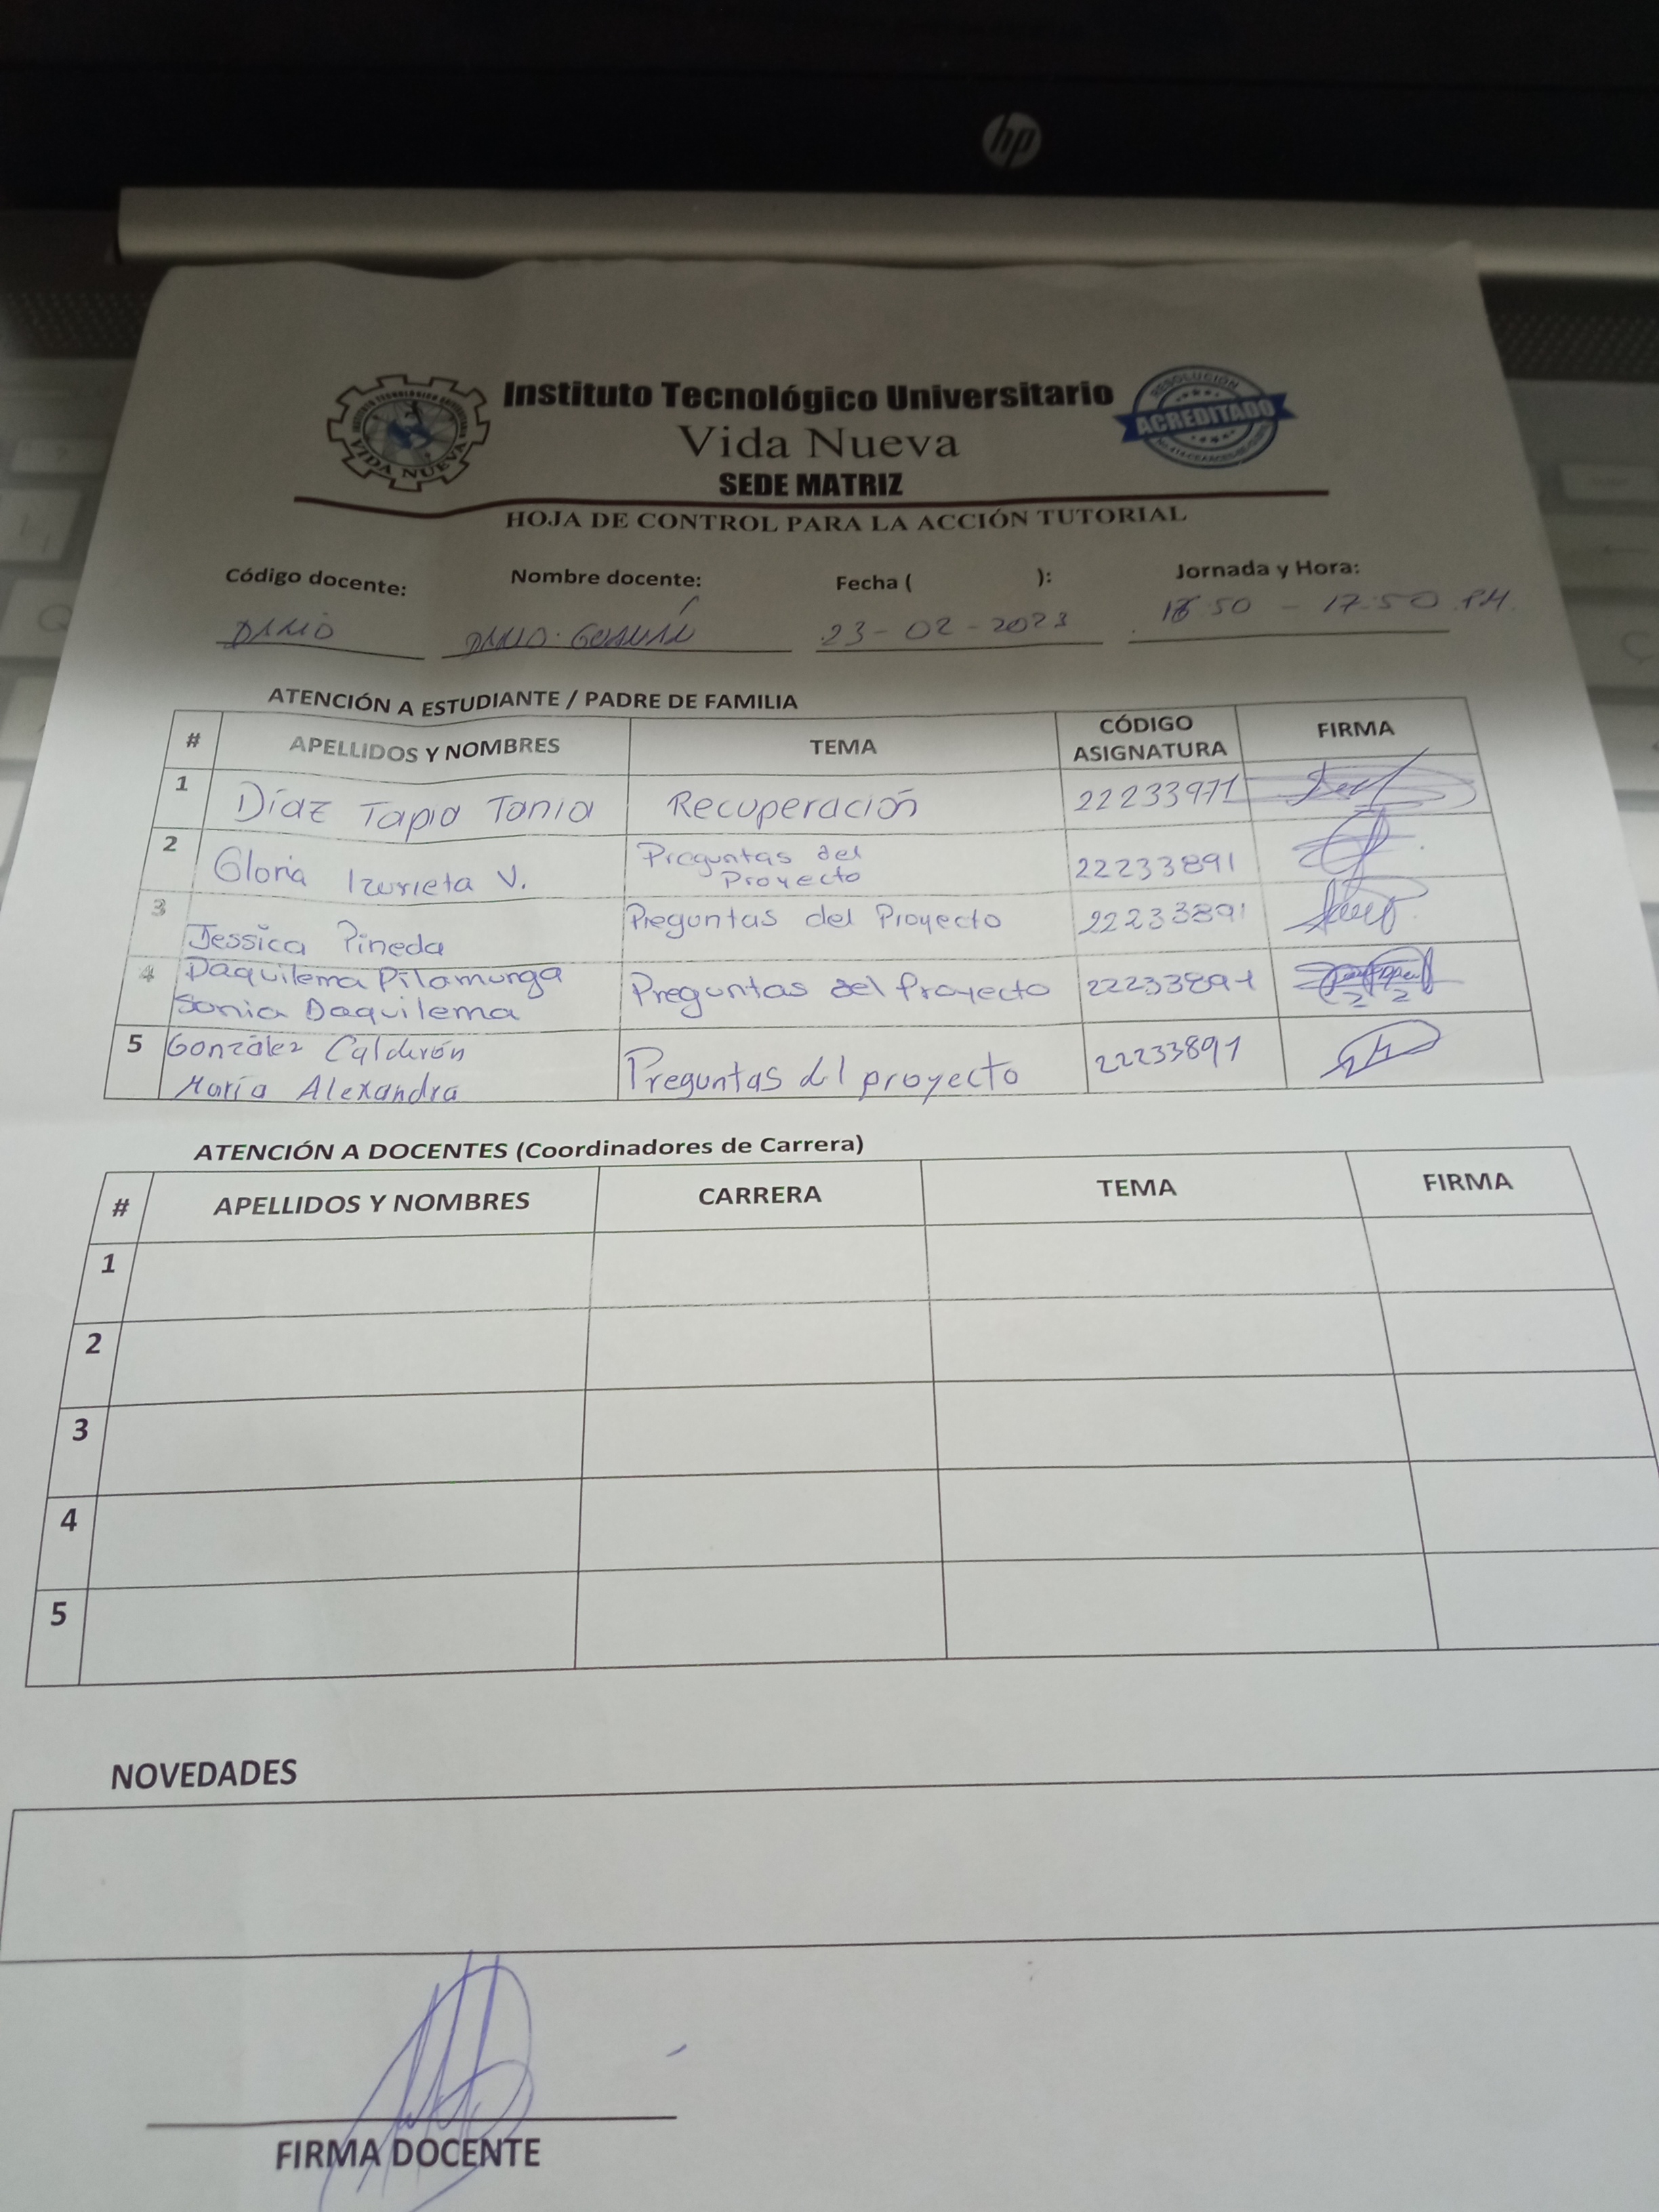 hp
Instituto Tecnológico Universitario
Vida Nueva
SEDE MATRIZ
VIDA NUEVA
RESOLUCIÓN
ACREDITADO
HOJA DE CONTROL PARA LA ACCIÓN TUTORIAL
Código docente: Nombre docente: Fecha ( ): Jornada y Hora:
DARÍO DARÍO 23-02-2023 16:50 - 17:50 PM.
ATENCIÓN A ESTUDIANTE / PADRE DE FAMILIA
# APELLIDOS Y NOMBRES TEMA CÓDIGO ASIGNATURA FIRMA
1 Díaz Tapia Tania Recuperación 22233971
2 Gloria Izurieta V. Preguntas del Proyecto 22233891
3 Jessica Pineda Preguntas del Proyecto 22233891
4 Daquilema Pilamunga Sonia Daquilema Preguntas del Proyecto 22233891
5 González Calderón María Alexandra Preguntas del proyecto 22233891
ATENCIÓN A DOCENTES (Coordinadores de Carrera)
# APELLIDOS Y NOMBRES CARRERA TEMA FIRMA
1
2
3
4
5
NOVEDADES
FIRMA DOCENTE